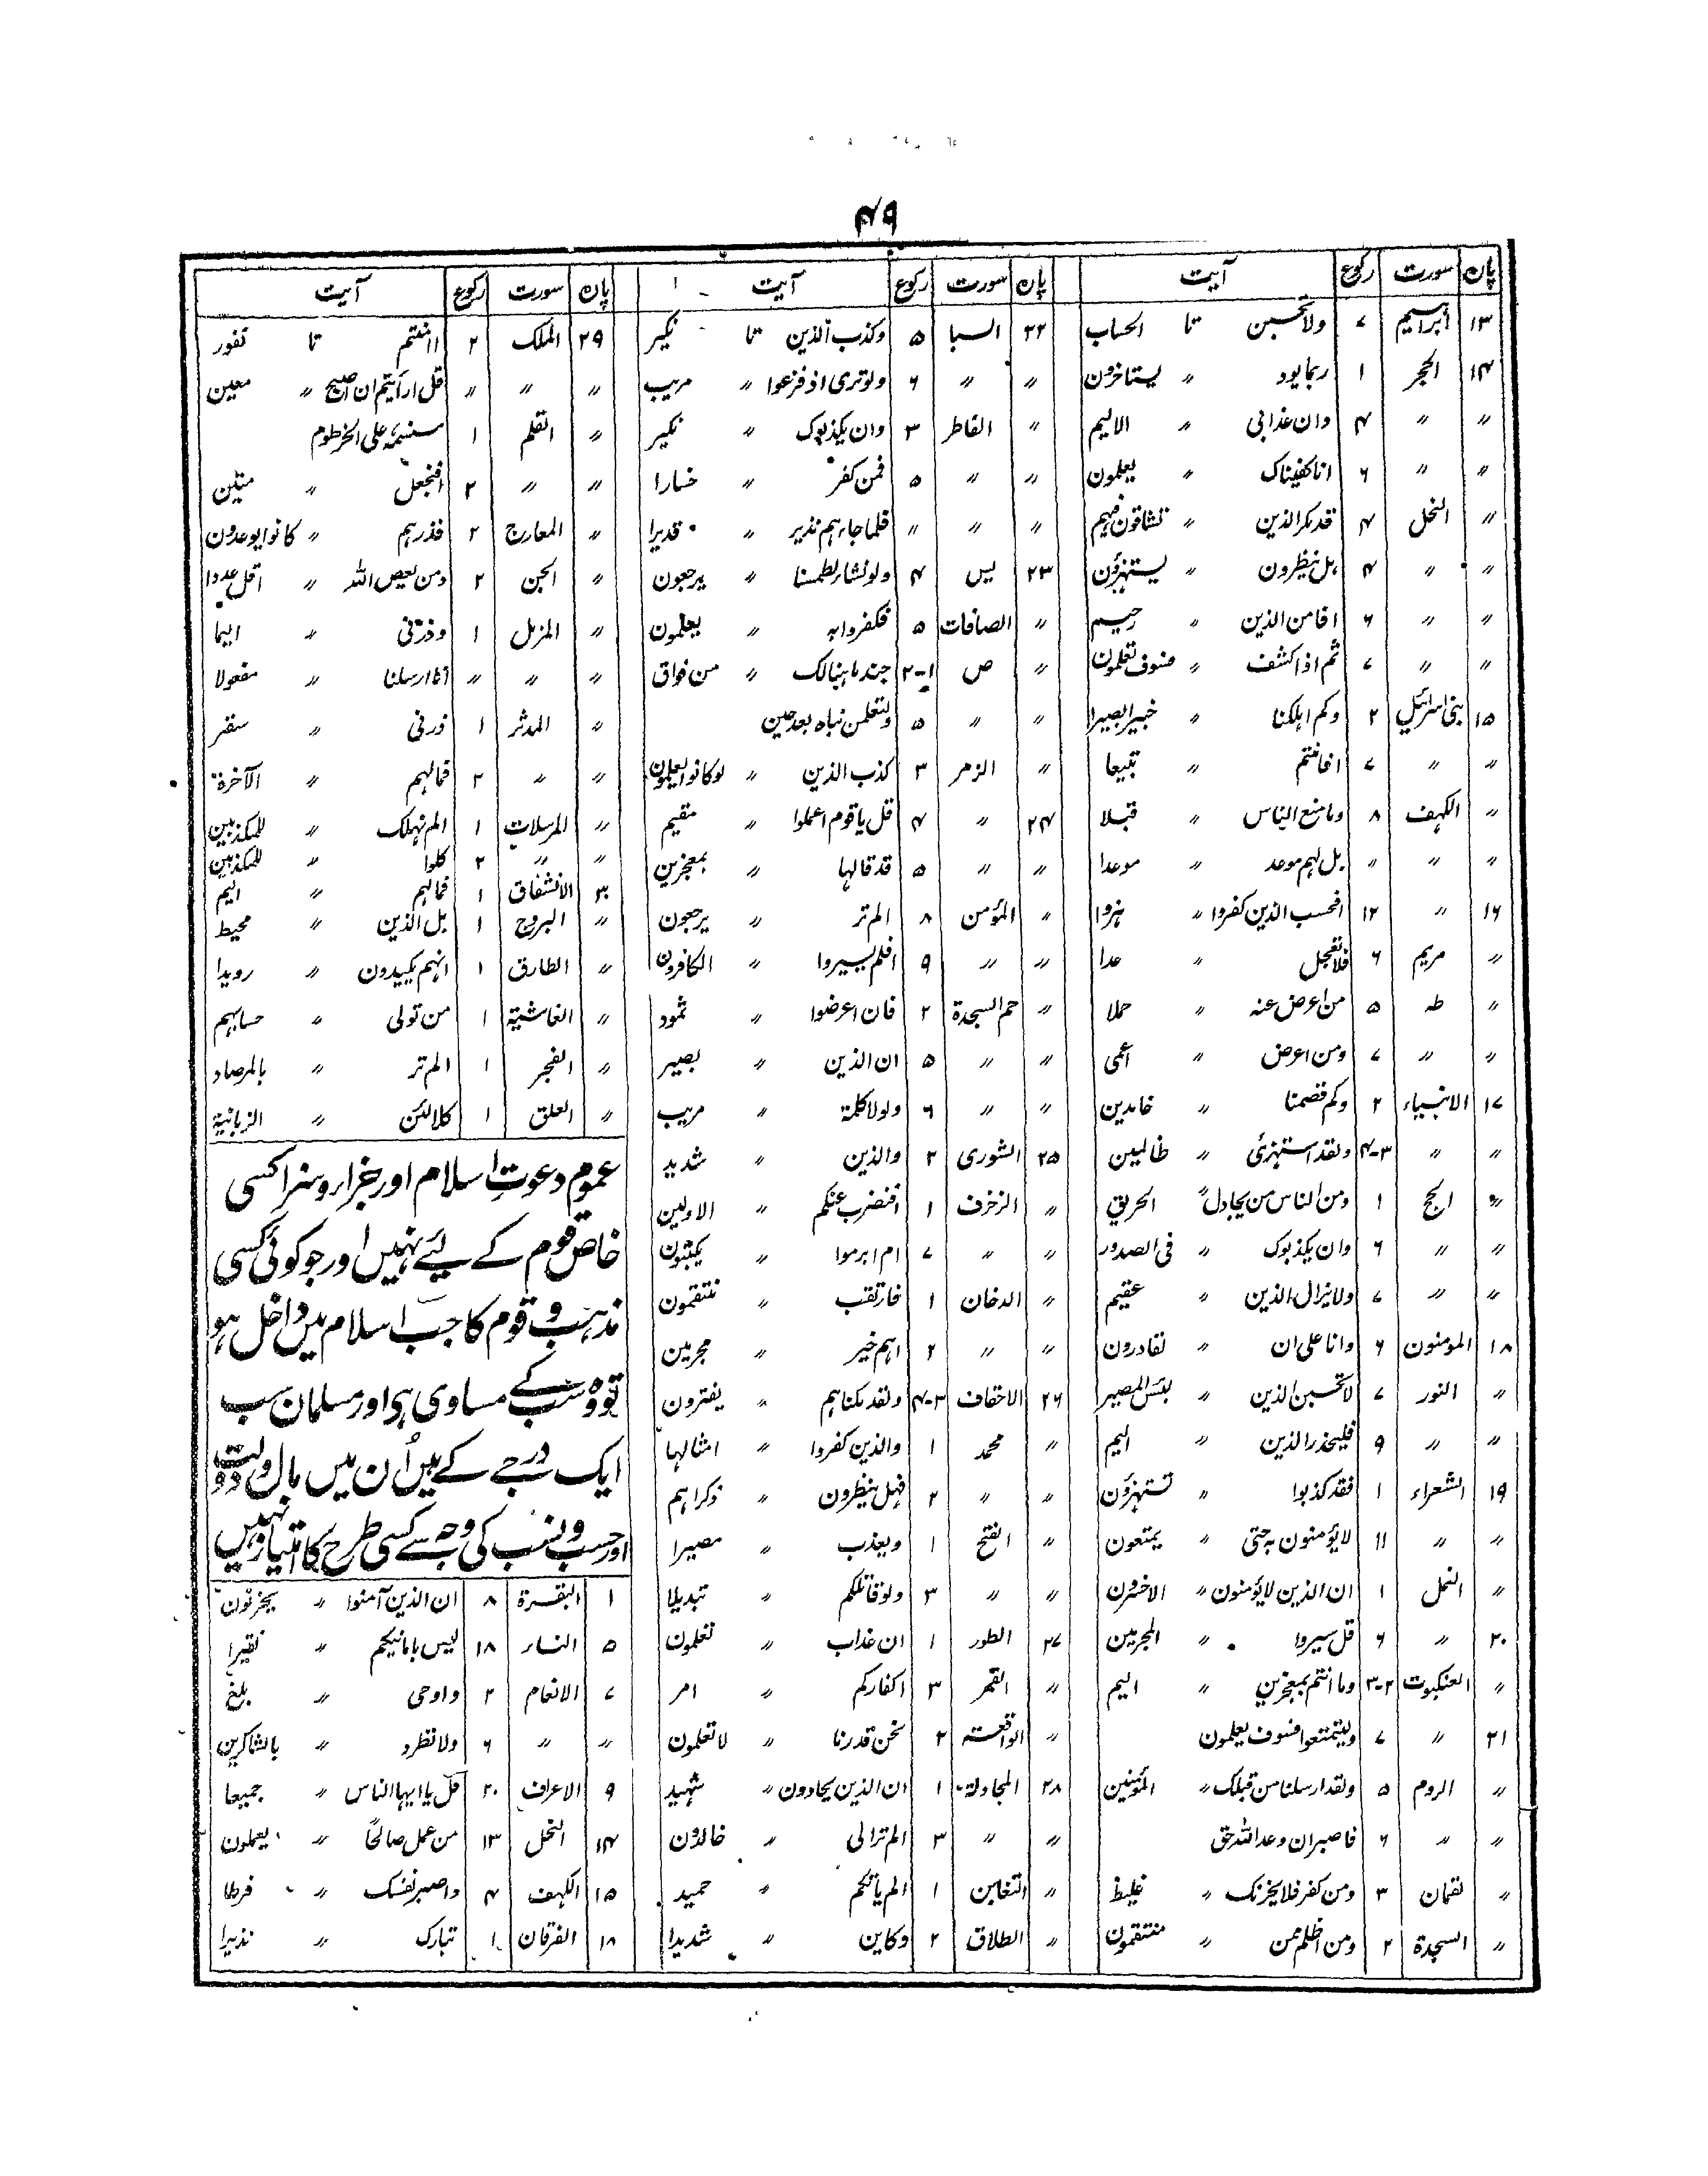 ۴۹
پارہ سورت رکوع آیت
۱۳ ابراہیم ۷ ولا تحسبن تا الحساب
۱۴ الحجر ۱ ربما یود 〃 یستاخرون
〃 〃 ۴ وان عذابی 〃 الالیم
〃 〃 ۶ انا کفیناک 〃 یعلمون
〃 النحل ۴ قد مکر الذین 〃 تشاقون فیہم
〃 〃 ۴ ہل ینظرون 〃 یستہزؤن
〃 〃 ۶ افامن الذین 〃 رحیم
〃 〃 ۷ ثم اذا کشف 〃 فسوف تعلمون
۱۵ بنی اسرائیل ۲ وکم اہلکنا 〃 خبیرا بصیرا
〃 〃 ۷ افامنتم 〃 تبیعا
〃 الکہف ۸ وما منع الناس 〃 قبلا
〃 〃 〃 بل لہم موعد 〃 موعدا
۱۶ 〃 ۱۲ افحسب الذین کفروا 〃 ہزوا
〃 مریم ۶ فلا تعجل 〃 عدا
〃 طہ ۵ من اعرض عنہ 〃 حملا
〃 〃 ۷ ومن اعرض 〃 اعمی
۱۷ الانبیاء ۲ وکم قصمنا 〃 خامدین
〃 〃 ۳-۴ ولقد استہزئ 〃 ظالمین
〃 الحج ۱ ومن الناس من یجادل 〃 الحریق
〃 〃 ۶ وان یکذبوک 〃 فی الصدور
〃 〃 ۷ ولا یزال الذین 〃 عقیم
۱۸ المومنون ۶ وانا علی ان 〃 لقادرون
〃 النور ۷ لا تحسبن الذین 〃 بئس المصیر
〃 〃 ۹ فلیحذر الذین 〃 الیم
۱۹ الشعراء ۱ فقد کذبوا 〃 تستہزؤن
〃 〃 ۱۱ لا یؤمنون بہ حتی 〃 یمتعون
〃 النمل ۱ ان الذین لا یؤمنون 〃 الاخرون
۲۰ 〃 ۶ قل سیروا 〃 المجرمین
〃 العنکبوت ۲-۳ وما انتم بمعجزین 〃 الیم
۲۱ 〃 ۷ ولیتمتعوا فسوف یعلمون
〃 الروم ۵ ولقد ارسلنا من قبلک 〃 المؤمنین
〃 〃 ۶ فاصبر ان وعد اللہ حق
〃 لقمان ۳ ومن کفر فلا یحزنک 〃 غلیظ
〃 السجدۃ ۲ ومن اظلم ممن 〃 منتقمون
پارہ سورت رکوع آیت
۲۲ السبا ۵ وکذب الذین تا نکیر
〃 〃 ۶ ولو تری اذ فزعوا 〃 مریب
〃 الفاطر ۳ وان یکذبوک 〃 نکیر
〃 〃 ۵ فمن کفر 〃 خسارا
〃 〃 〃 فلما جاءہم نذیر 〃 قدیرا
۲۳ یٰس ۴ ولو نشاء لطمسنا 〃 یرجعون
〃 الصافات ۵ فکفروا بہ 〃 یعلمون
〃 ص ۱-۲ جند ما ہنالک 〃 من فواق
〃 〃 ۵ ولتعلمن نباہ بعد حین
〃 الزمر ۳ کذب الذین 〃 لو کانوا یعلمون
۲۴ 〃 ۴ قل یا قوم اعملوا 〃 مقیم
〃 〃 ۵ قد قالہا 〃 بمعجزین
〃 المؤمن ۸ الم تر 〃 یرجعون
〃 〃 ۹ افلم یسیروا 〃 الکافرون
〃 حم السجدۃ ۲ فان اعرضوا 〃 ثمود
〃 〃 ۵ ان الذین 〃 بصیر
〃 〃 ۶ ولولا کلمۃ 〃 مریب
۲۵ الشوری ۲ والذین 〃 شدید
〃 الزخرف ۱ افنضرب عنکم 〃 الاولین
〃 〃 ۷ ام ابرموا 〃 یکتبون
〃 الدخان ۱ فارتقب 〃 منتقمون
〃 〃 ۲ اہم خیر 〃 مجرمین
۲۶ الاحقاف ۳-۴ ولقد مکناہم 〃 یفترون
〃 محمد ۱ والذین کفروا 〃 امثالہا
〃 〃 ۲ فہل ینظرون 〃 ذکراہم
〃 الفتح ۱ ویعذب 〃 مصیرا
〃 〃 ۳ ولو قاتلکم 〃 تبدیلا
۲۷ الطور ۱ ان عذاب 〃 تعلمون
〃 القمر ۳ اکفارکم 〃 امر
〃 الواقعۃ ۲ نحن قدرنا 〃 لا تعلمون
۲۸ المجادلۃ ۱ ان الذین یحادون 〃 شہید
〃 〃 ۳ الم تر الی 〃 خالدون
〃 التغابن ۱ الم یأتکم 〃 حمید
〃 الطلاق ۲ وکاین 〃 شدیدا
پارہ سورت رکوع آیت
۲۹ الملک ۲ ءامنتم تا نفور
〃 〃 〃 قل ارأیتم ان اصبح 〃 معین
〃 القلم ۱ سنسمہ علی الخرطوم
〃 〃 ۲ افنجعل 〃 متین
〃 المعارج ۲ فذرہم 〃 کانوا یوعدون
〃 الجن ۲ ومن یعص اللہ 〃 اقل عددا
〃 المزمل ۱ وذرنی 〃 الیما
〃 〃 〃 انا ارسلنا 〃 مفعولا
〃 المدثر ۱ ذرنی 〃 سقر
〃 〃 ۲ فمالہم 〃 الآخرۃ
〃 المرسلات ۱ الم نہلک 〃 للمکذبین
〃 〃 ۲ کلوا 〃 للمکذبین
۳۰ الانشقاق ۱ فمالہم 〃 الیم
〃 البروج ۱ بل الذین 〃 محیط
〃 الطارق ۱ انہم یکیدون 〃 رویدا
〃 الغاشیۃ ۱ من تولی 〃 حسابہم
〃 الفجر ۱ الم تر 〃 بالمرصاد
〃 العلق ۱ کلا لئن 〃 الزبانیۃ
عموم دعوتِ اسلام اور جزار وسزا کسی
خاص قوم کے لیئے نہیں اور جو کوئی کسی
مذہب و قوم کا جب اسلام میں داخل ہو
تو وہ سب کے مساوی ہی اور مسلمان سب
ایک درجے کے ہیں اُن میں مال و دولت
اور حسب و نسب کی وجہ سے کسی طرح کا امتیاز نہیں
۱ البقرۃ ۸ ان الذین آمنوا 〃 یحزنون
۵ النساء ۱۸ لیس بامانیکم 〃 نقیرا
۷ الانعام ۲ واوحی 〃 بلغ
〃 〃 ۶ ولا تطرد 〃 بالشاکرین
۹ الاعراف ۲۰ قل یا ایہا الناس 〃 جمیعا
۱۴ النحل ۱۳ من عمل صالحًا 〃 یعملون
۱۵ الکہف ۴ واصبر نفسک 〃 فرطا
۱۸ الفرقان ۱ تبارک 〃 نذیرا